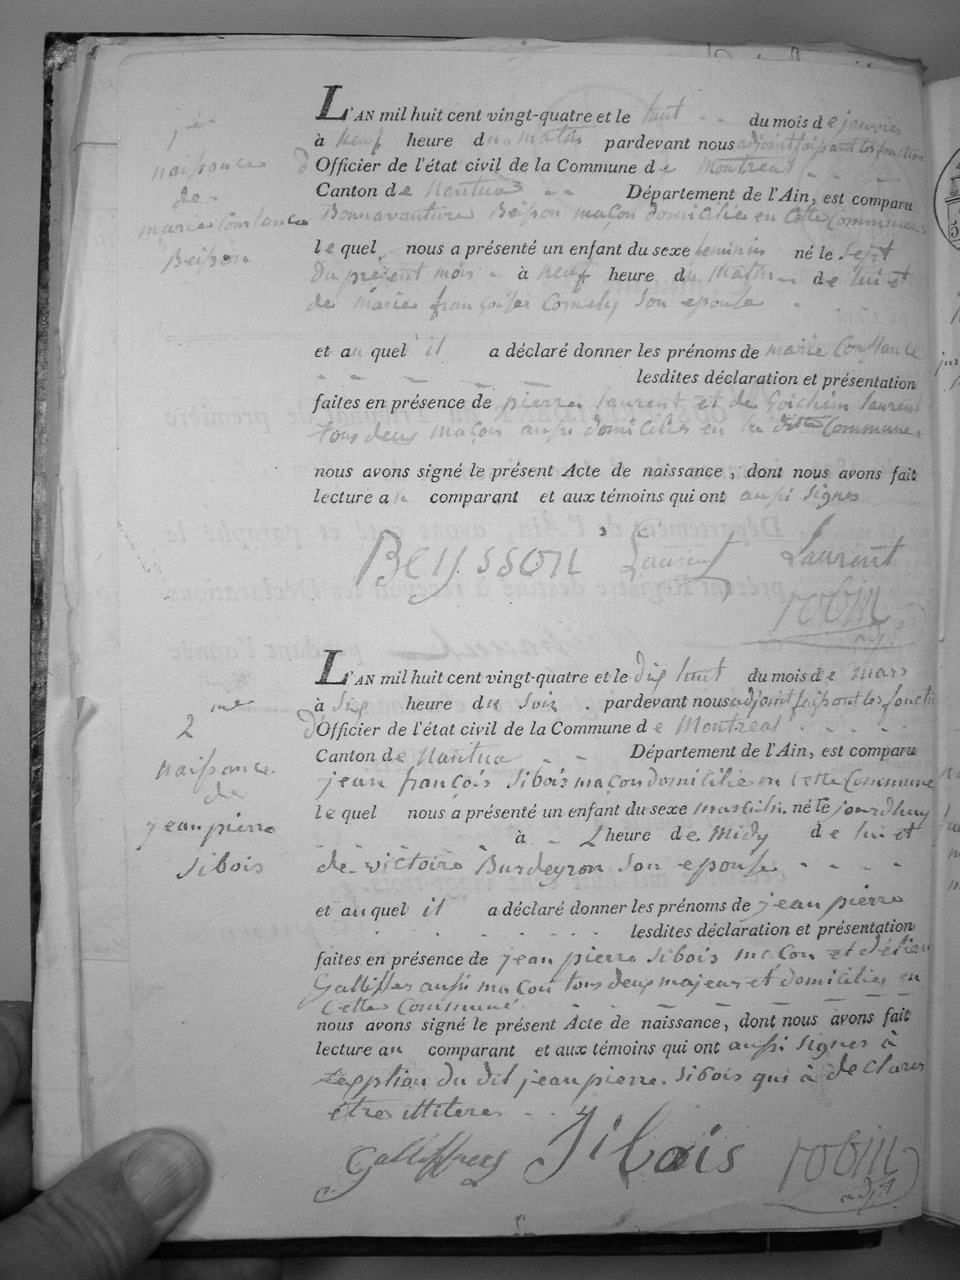 1ère
naissance
de
marie Constance
Beisson
L'AN mil huit cent vingt-quatre et le huit du mois de janvier
à neuf heure du matin pardevant nous adjoint faisant les fonction
d'Officier de l'état civil de la Commune de Montreal
Canton de Nantua Département de l'Ain, est comparu
Bonnavanture Beisson maçon domicilié en cette Commune
lequel nous a présenté un enfant du sexe feminin né le sept
du présent mois à neuf heure du matin de lui et
de marie françoise son epouse
et auquel il a déclaré donner les prénoms de marie Constance
lesdites déclaration et présentation
faites en présence de pierre laurent et de laurent
tous deux maçon aussi domiciliés en la ditte Commune
nous avons signé le présent Acte de naissance, dont nous avons fait
lecture au comparant et aux témoins qui ont aussi signes
Beysson Laurent Laurent
robin
adjt
2me
naissance
de
jean pierre
sibois
L'AN mil huit cent vingt-quatre et le dix huit du mois de mars
à six heure du soir pardevant nous adjoint faisont les foncti
d'Officier de l'état civil de la Commune de Montreal
Canton de Nantua Département de l'Ain, est comparu
jean françois sibois maçon domicilié en cette Commune
lequel nous a présenté un enfant du sexe masculin né le jourdhuy
à heure de Midy de lui et
de victoire Burdeyron son epouse
et auquel il a déclaré donner les prénoms de jean pierre
lesdites déclaration et présentation
faites en présence de jean pierre sibois macon et
aussi macon tous deux majeur et domiciliés en
cette Commune
nous avons signé le présent Acte de naissance, dont nous avons fait
lecture au comparant et aux témoins qui ont aussi signes à
du dit jean pierre sibois qui à declarer
être illiteres
Sibois robin
adjt